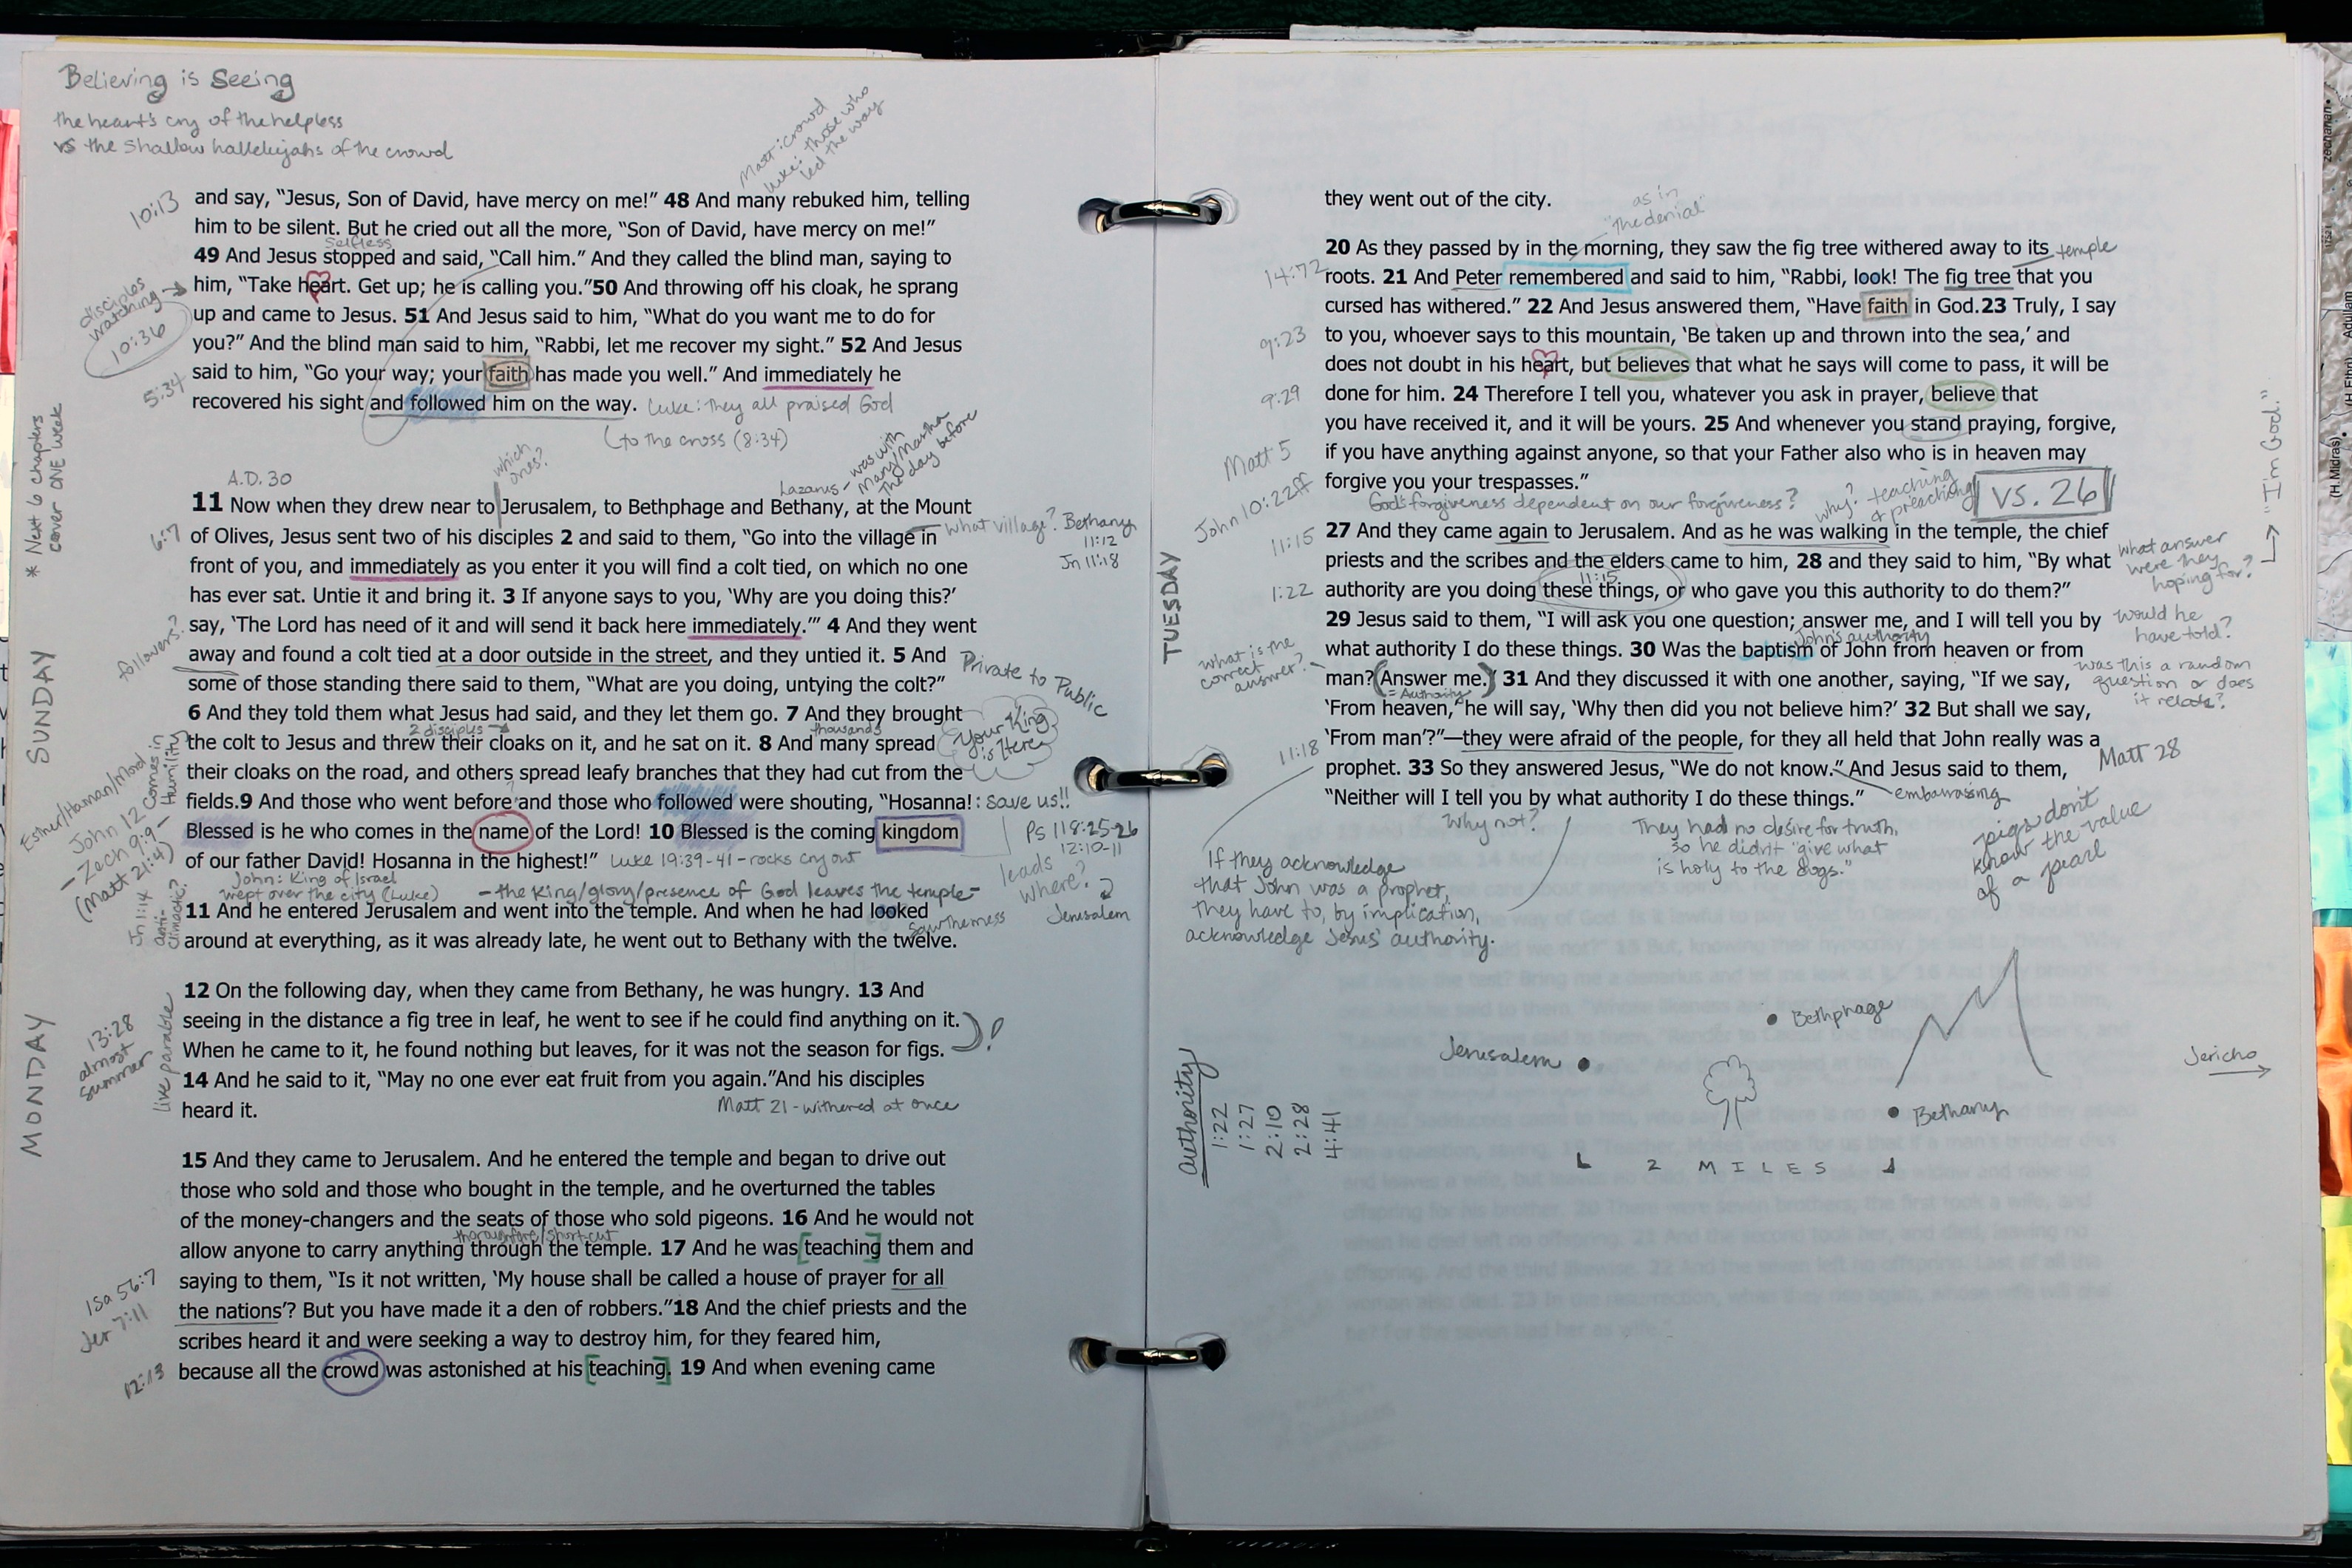 Believing is Seeing
the heart's cry of the helpless
vs the shallow hallelujahs of the crowd
Matt: crowd
Luke: those who
led the way
10:13
and say, “Jesus, Son of David, have mercy on me!” 48 And many rebuked him, telling
him to be silent. But he cried out all the more, “Son of David, have mercy on me!”
selfless
49 And Jesus stopped and said, “Call him.” And they called the blind man, saying to
disciples
watching
10:36
him, “Take heart. Get up; he is calling you.”50 And throwing off his cloak, he sprang
up and came to Jesus. 51 And Jesus said to him, “What do you want me to do for
you?” And the blind man said to him, “Rabbi, let me recover my sight.” 52 And Jesus
5:34
said to him, “Go your way; your faith has made you well.” And immediately he
recovered his sight and followed him on the way. Luke: they all praised God
(to the cross (8:34)
* Next 6 chapters
cover ONE week
A.D. 30
which
ones?
Lazarus - was with
Mary/Martha
the day before
11 Now when they drew near to Jerusalem, to Bethphage and Bethany, at the Mount
6:7
of Olives, Jesus sent two of his disciples 2 and said to them, “Go into the village in
what village? Bethany
11:12
Jn 11:18
front of you, and immediately as you enter it you will find a colt tied, on which no one
has ever sat. Untie it and bring it. 3 If anyone says to you, ‘Why are you doing this?’
say, ‘The Lord has need of it and will send it back here immediately.’” 4 And they went
followers?
away and found a colt tied at a door outside in the street, and they untied it. 5 And
Private to Public
some of those standing there said to them, “What are you doing, untying the colt?”
SUNDAY
6 And they told them what Jesus had said, and they let them go. 7 And they brought
2 disciples
thousands
Your King
is Here
the colt to Jesus and threw their cloaks on it, and he sat on it. 8 And many spread
their cloaks on the road, and others spread leafy branches that they had cut from the
fields.9 And those who went before and those who followed were shouting, “Hosanna!: save us!!
Esther/Haman/Mord
John 12 Comes in
Humility
- Zech 9:9 -
(Matt 21:4)
Blessed is he who comes in the name of the Lord! 10 Blessed is the coming kingdom
Ps 118:25-26
12:10-11
of our father David! Hosanna in the highest!” Luke 19:39-41 - rocks cry out
leads
where?
Jerusalem
John: King of Israel
wept over the city (Luke) - the King/glory/presence of God leaves the temple -
Jn 1:14
anti-
climactic?
11 And he entered Jerusalem and went into the temple. And when he had looked
saw the mess
around at everything, as it was already late, he went out to Bethany with the twelve.
MONDAY
13:28
almost
summer
live parable
12 On the following day, when they came from Bethany, he was hungry. 13 And
seeing in the distance a fig tree in leaf, he went to see if he could find anything on it.
When he came to it, he found nothing but leaves, for it was not the season for figs. !
14 And he said to it, “May no one ever eat fruit from you again.”And his disciples
heard it.
Matt 21 - withered at once
15 And they came to Jerusalem. And he entered the temple and began to drive out
those who sold and those who bought in the temple, and he overturned the tables
of the money-changers and the seats of those who sold pigeons. 16 And he would not
thoroughfare/shortcut
allow anyone to carry anything through the temple. 17 And he was [teaching] them and
Isa 56:7
Jer 7:11
saying to them, “Is it not written, ‘My house shall be called a house of prayer for all
the nations’? But you have made it a den of robbers.”18 And the chief priests and the
scribes heard it and were seeking a way to destroy him, for they feared him,
12:13
because all the crowd was astonished at his [teaching]. 19 And when evening came
they went out of the city.
as in
"the denial"
20 As they passed by in the morning, they saw the fig tree withered away to its
temple
14:72
roots. 21 And Peter remembered and said to him, “Rabbi, look! The fig tree that you
cursed has withered.” 22 And Jesus answered them, “Have faith in God.23 Truly, I say
9:23
to you, whoever says to this mountain, ‘Be taken up and thrown into the sea,’ and
does not doubt in his heart, but believes that what he says will come to pass, it will be
9:29
done for him. 24 Therefore I tell you, whatever you ask in prayer, believe that
you have received it, and it will be yours. 25 And whenever you stand praying, forgive,
Matt 5
if you have anything against anyone, so that your Father also who is in heaven may
forgive you your trespasses.”
God's forgiveness dependent on our forgiveness?
why? teaching
& preaching
VS. 26
John 10:22ff
→ "I'm God."
TUESDAY
11:15
27 And they came again to Jerusalem. And as he was walking in the temple, the chief
priests and the scribes and the elders came to him, 28 and they said to him, “By what
what answer
were they
hoping for?
11:15
1:22
authority are you doing these things, or who gave you this authority to do them?”
29 Jesus said to them, “I will ask you one question; answer me, and I will tell you by
would he
have told?
John's authority
what authority I do these things. 30 Was the baptism of John from heaven or from
what is the
correct
answer?
man? (Answer me.) 31 And they discussed it with one another, saying, “If we say,
was this a random
question or does
it relate?
= Authority
‘From heaven,’ he will say, ‘Why then did you not believe him?’ 32 But shall we say,
11:18
‘From man’?”—they were afraid of the people, for they all held that John really was a
Matt 28
prophet. 33 So they answered Jesus, “We do not know.” And Jesus said to them,
“Neither will I tell you by what authority I do these things.”
embarrassing
Why not?
They had no desire for truth,
so he didn't "give what
is holy to the dogs."
pigs don't
know the value
of a pearl
If they acknowledge
that John was a prophet,
they have to, by implication,
acknowledge Jesus' authority.
Authority
1:22
1:27
2:10
2:28
4:41
Bethphage
Jerusalem
Jericho
Bethany
2 MILES
(H.Midras)